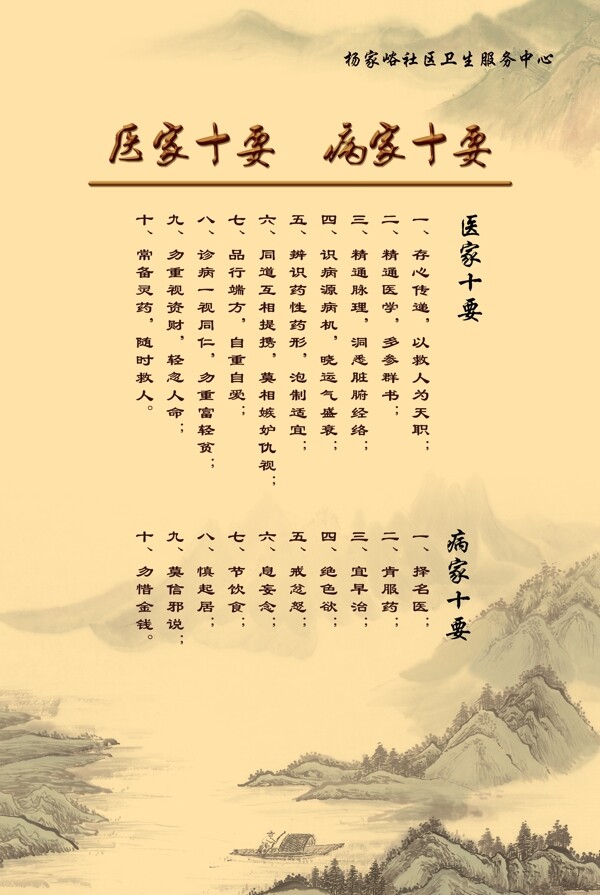 杨家峪社区卫生服务中心
医家十要 病家十要
医家十要
一、存心传递，以救人为天职；
二、精通医学，多参群书；
三、精通脉理，洞悉脏腑经络；
四、识病源病机，晓运气盛衰；
五、辨识药性药形，泡制适宜；
六、同道互相提携，莫相嫉妒仇视；
七、品行端方，自重自爱；
八、诊病一视同仁，勿重富轻贫；
九、勿重视资财，轻忽人命；
十、常备灵药，随时救人。
病家十要
一、择名医；
二、肯服药；
三、宜早治；
四、绝色欲；
五、戒忿怒；
六、息妄念；
七、节饮食；
八、慎起居；
九、莫信邪说；
十、勿惜金钱。